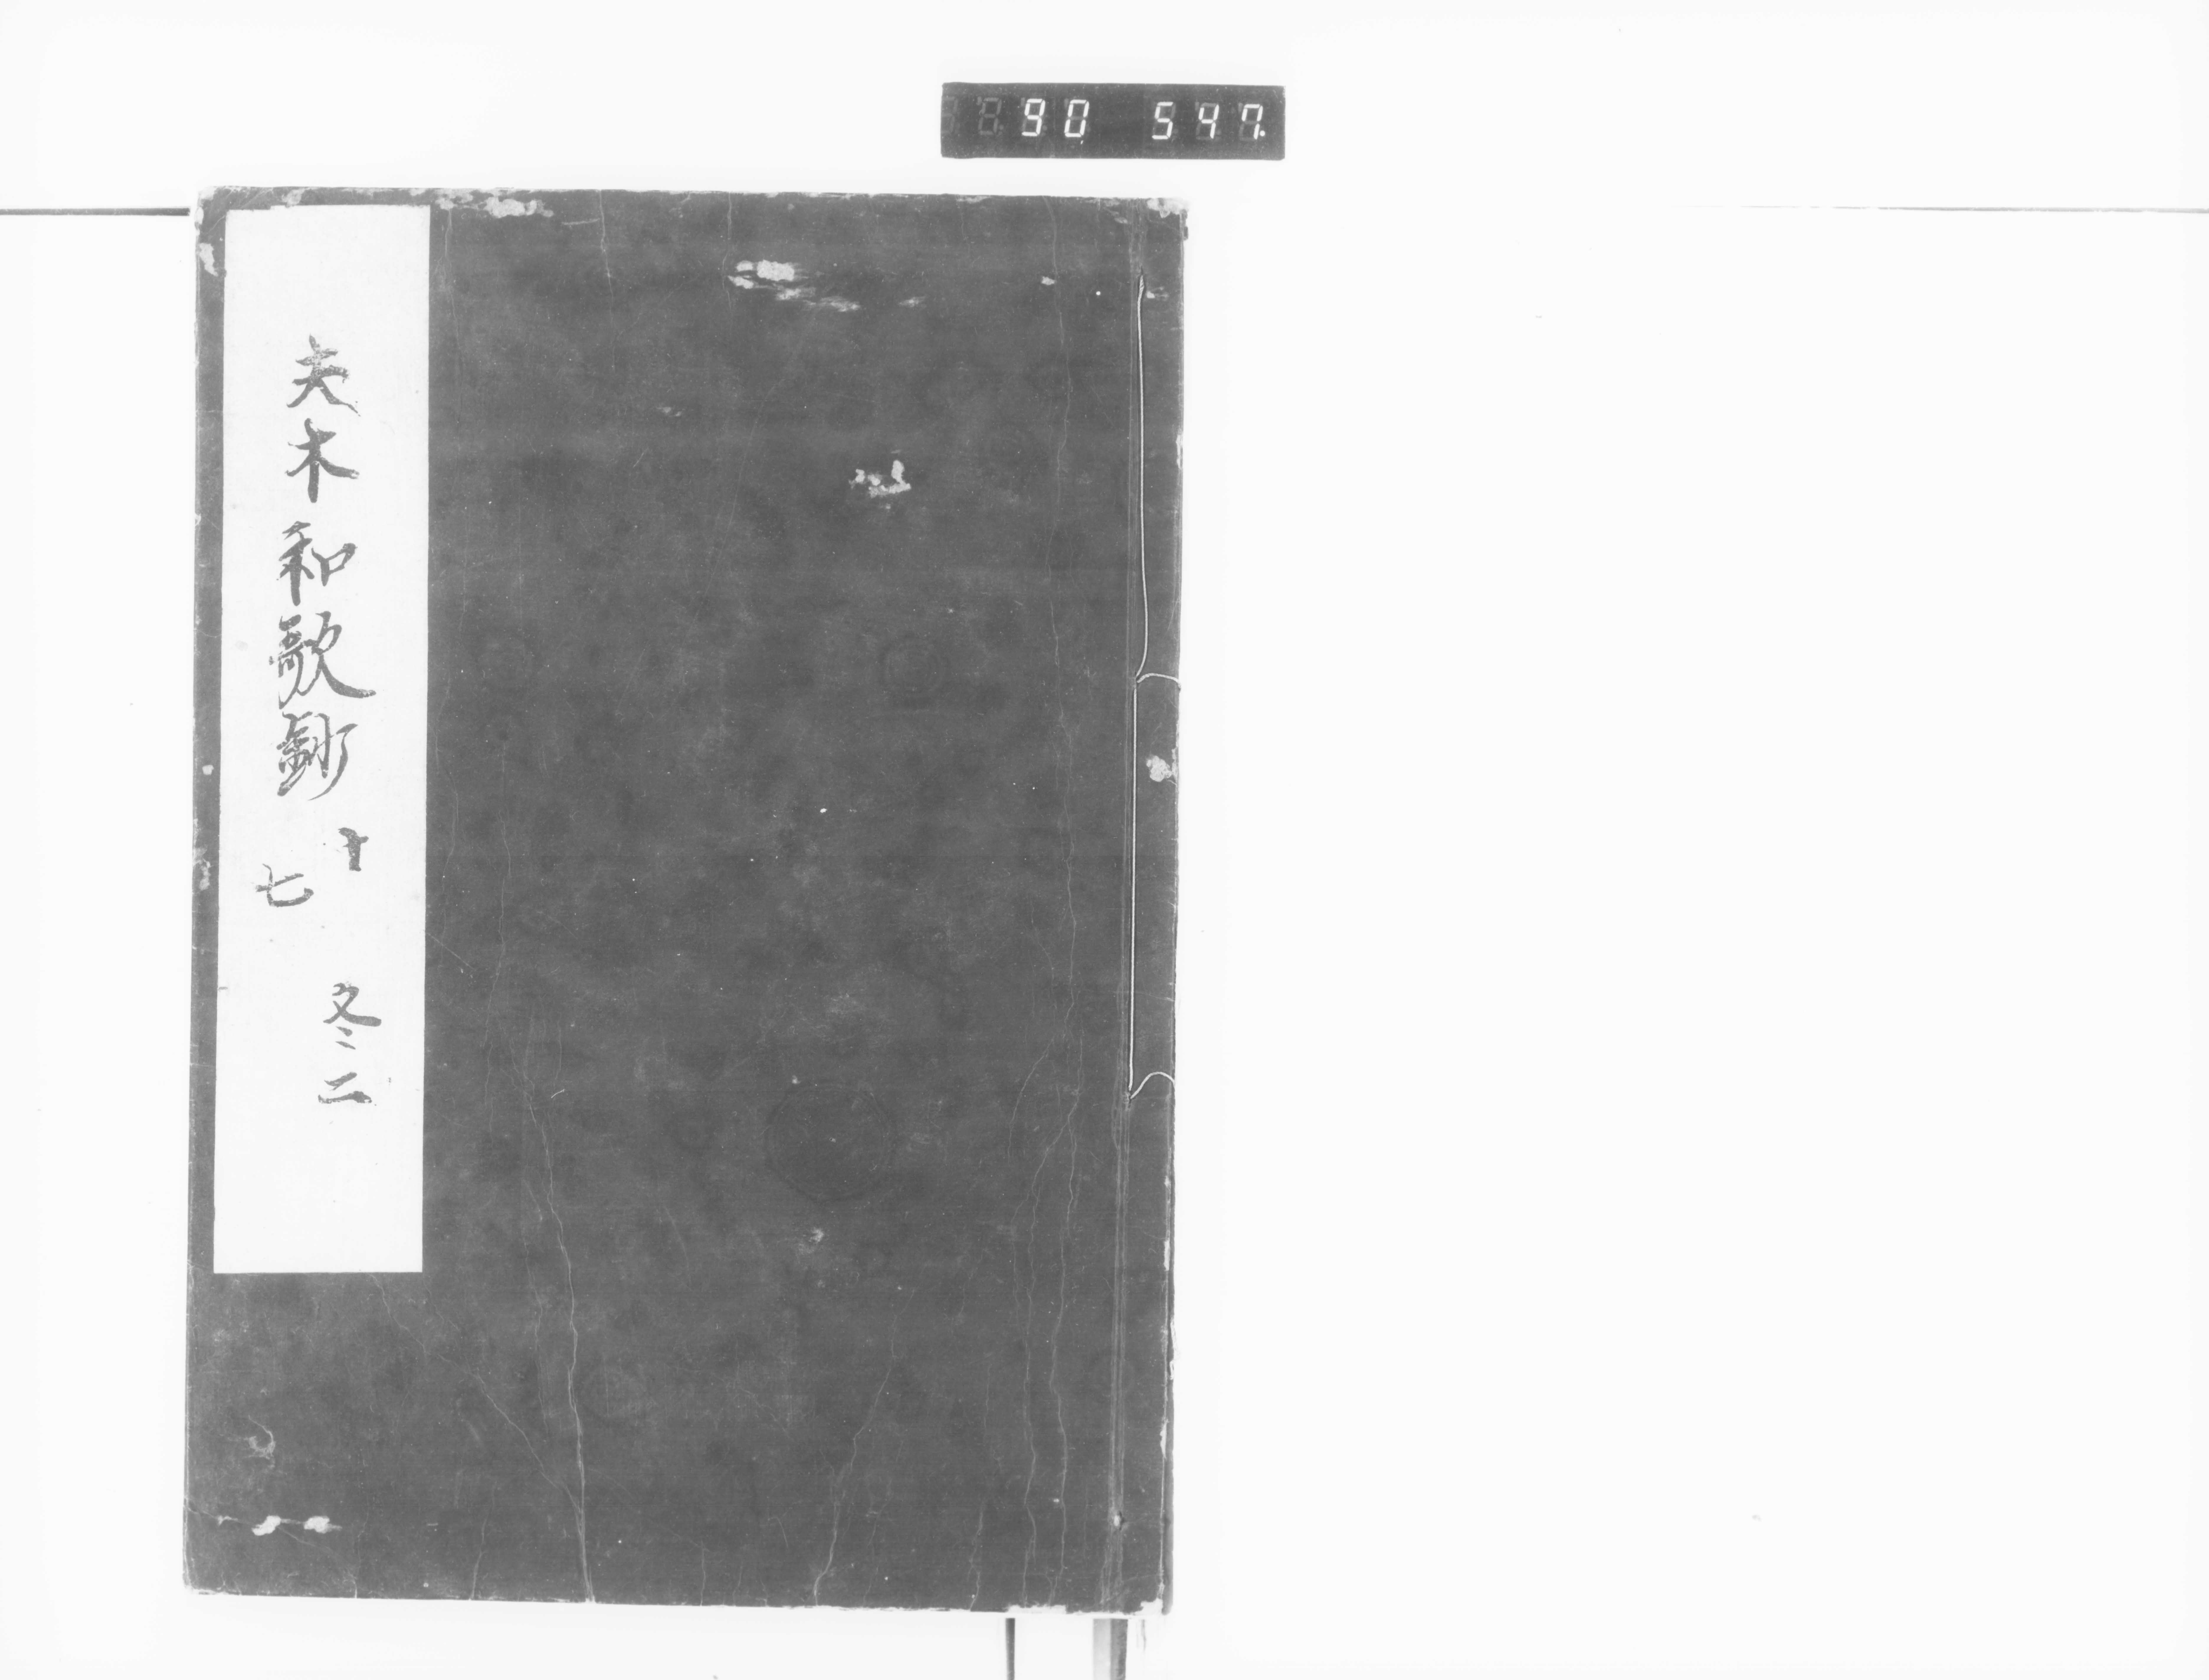 90 547.
夫木和歌鈔 十七 冬二